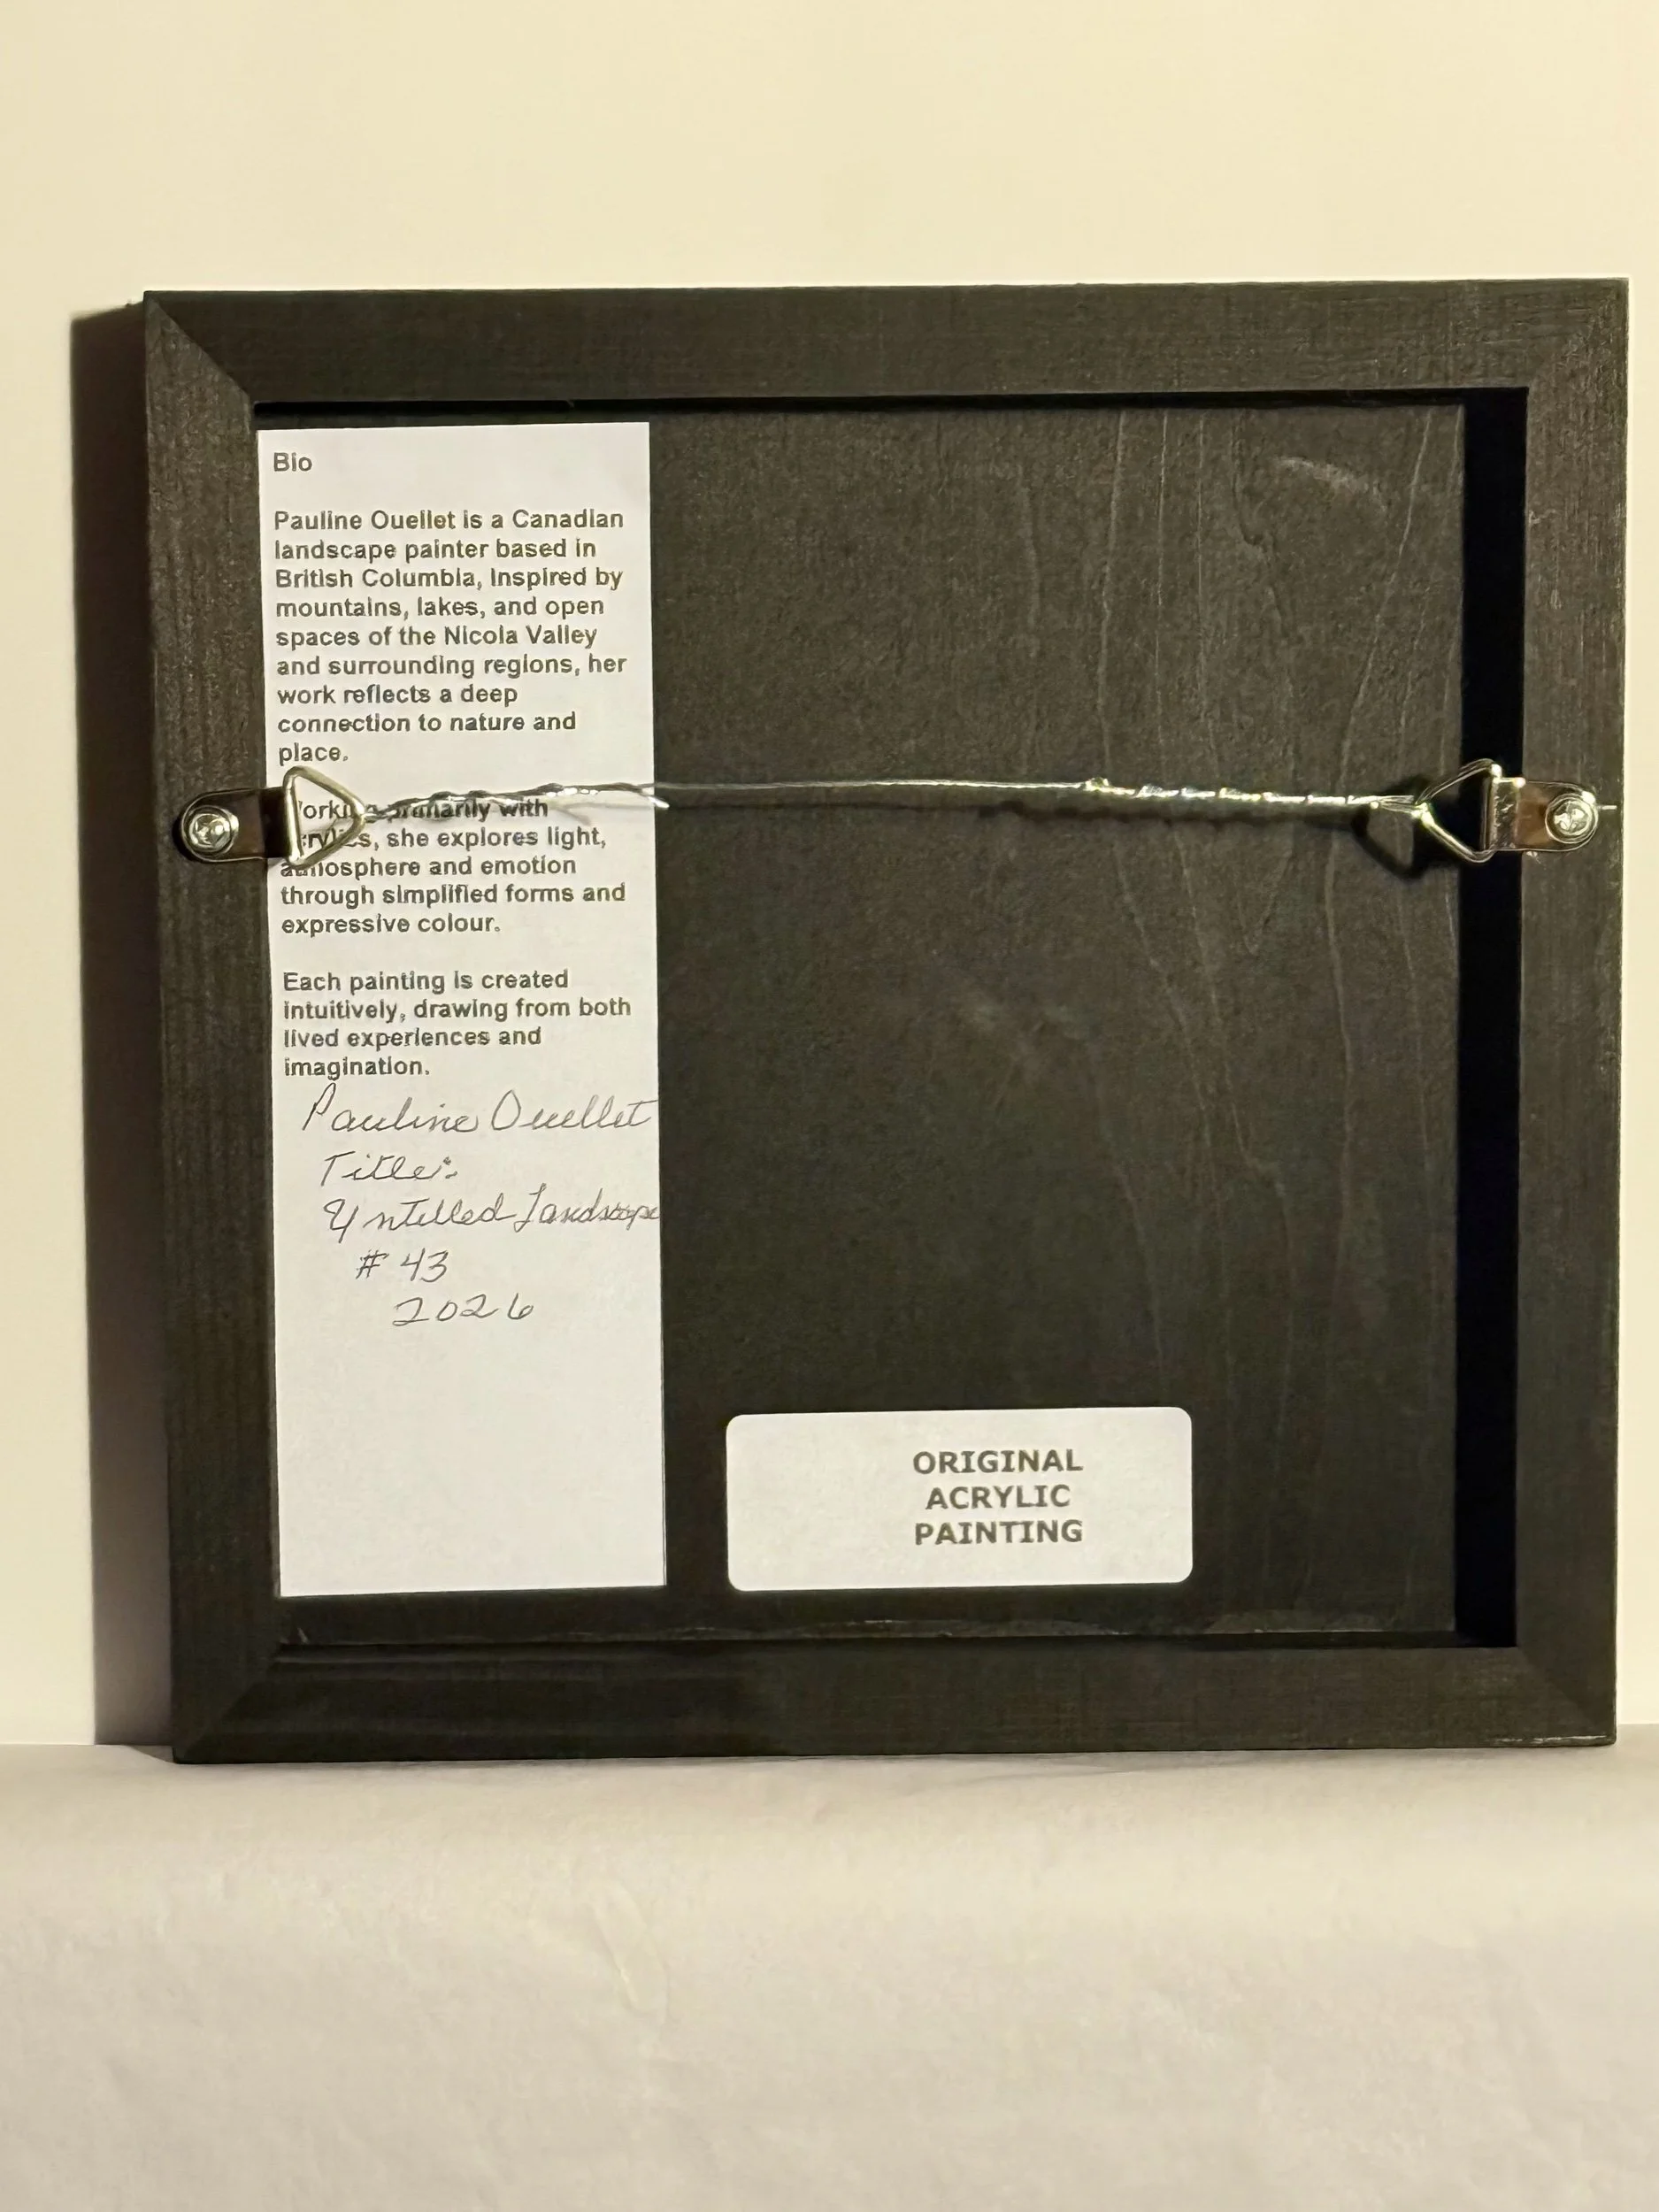 Bio
Pauline Ouellet is a Canadian
landscape painter based in
British Columbia, Inspired by
mountains, lakes, and open
spaces of the Nicola Valley
and surrounding regions, her
work reflects a deep
connection to nature and
place.
Working primarily with
acrylics, she explores light,
atmosphere and emotion
through simplified forms and
expressive colour.
Each painting is created
intuitively, drawing from both
lived experiences and
imagination.
Pauline Ouellet
Title:
Untilled Landscape
# 43
2026
ORIGINAL
ACRYLIC
PAINTING